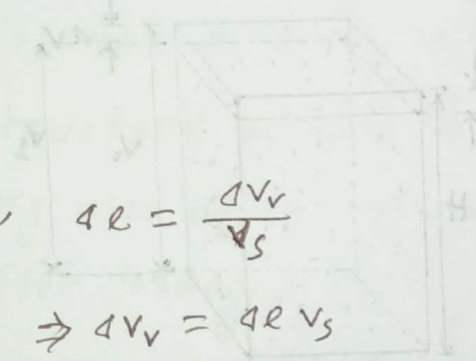 Δe = ΔVᵥ / Vₛ
⇒ ΔVᵥ = Δe Vₛ